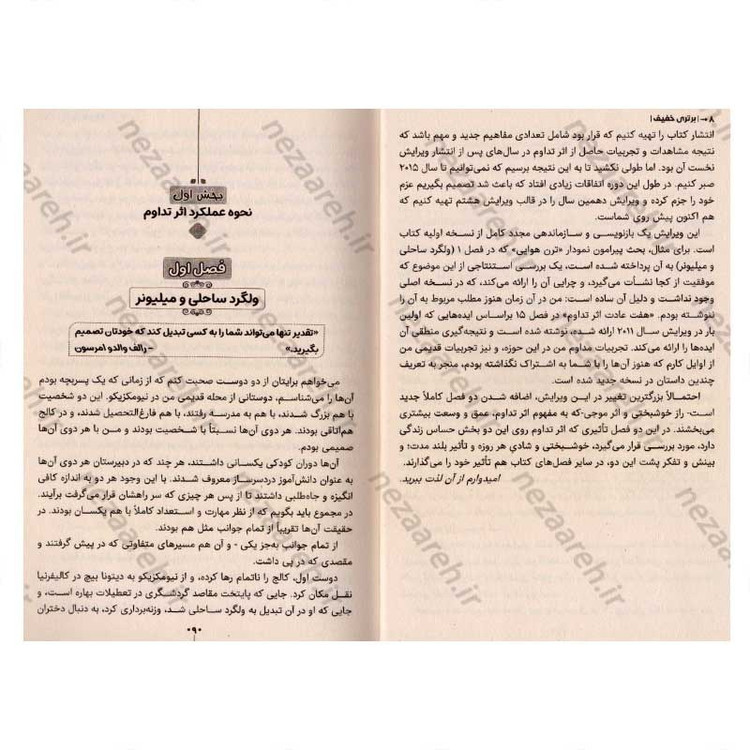 ۸ → | برتری خفیف |
انتشار کتاب را تهیه کنیم که قرار بود شامل تعدادی مفاهیم جدید و مهم باشد که
نتیجه مشاهدات و تجربیات حاصل از اثر تداوم در سال‌های پس از انتشار ویرایش
نخست آن بود. اما طولی نکشید تا به این نتیجه برسیم که نمی‌توانیم تا سال ۲۰۱۵
صبر کنیم. در طول این دوره اتفاقات زیادی افتاد که باعث شد تصمیم بگیریم عزم
خود را جزم کرده و ویرایش دهمین سال را در قالب ویرایش هشتم تهیه کنیم که
هم اکنون پیش روی شماست.
این ویرایش یک بازنویسی و سازماندهی مجدد کامل از نسخه اولیه کتاب
است. برای مثال، بحث پیرامون نمودار «ترن هوایی» که در فصل ۱ (ولگرد ساحلی
و میلیونر) به آن پرداخته شده است، یک بررسی استنتاجی از این موضوع که
موفقیت از کجا نشأت می‌گیرد، و چرایی آن را ارائه می‌کند، که در نسخه اصلی
وجود نداشت و دلیل آن ساده است: من در آن زمان هنوز مطلب مربوط به آن را
ننوشته بودم. «هفت عادت اثر تداوم» در فصل ۱۵ براساس ایده‌هایی که اولین
بار در ویرایش سال ۲۰۱۱ ارائه شده، نوشته شده است و نتیجه‌گیری منطقی آن
ایده‌ها را ارائه می‌کند. تجربیات مداوم من در این حوزه، و نیز تجربیات قدیمی من
از اوایل کارم که هنوز آن‌ها را با شما به اشتراک نگذاشته بودم، منجر به تعریف
چندین داستان در نسخه جدید شده است.
احتمالاً بزرگترین تغییر در این ویرایش، اضافه شدن دو فصل کاملاً جدید
است- راز خوشبختی و اثر موجی-که به مفهوم اثر تداوم، عمق و وسعت بیشتری
می‌بخشند. در این دو فصل تأثیری که اثر تداوم روی این دو بخش حساس زندگی
دارد، مورد بررسی قرار می‌گیرد، خوشبختی و شادیِ هر روزه و تأثیر بلند مدت؛ و
بینش و تفکر پشت این دو، در سایر فصل‌های کتاب هم تأثیر خود را می‌گذارند.
امیدوارم از آن لذت ببرید.
بخش اول
نحوه عملکرد اثر تداوم
فصل اول
ولگرد ساحلی و میلیونر
«تقدیر تنها می‌تواند شما را به کسی تبدیل کند که خودتان تصمیم
بگیرید.» - رالف والدو امرسون
می‌خواهم برایتان از دو دوست صحبت کنم که از زمانی که یک پسربچه بودم
آن‌ها را می‌شناسم، دوستانی از محله قدیمی من در نیومکزیکو. این دو شخصیت
با هم بزرگ شدند، با هم به مدرسه رفتند، با هم فارغ‌التحصیل شدند، و در کالج
هم‌اتاقی بودند. هر دوی آن‌ها نسبتاً با شخصیت بودند و من با هر دوی آن‌ها
صمیمی بودم.
آن‌ها دوران کودکی یکسانی داشتند، هر چند که در دبیرستان هر دوی آن‌ها
به عنوان دانش‌آموز دردسرساز معروف شدند. با این وجود هر دو به اندازه کافی
انگیزه و جاه‌طلبی داشتند تا از پس هر چیزی که سر راهشان قرار می‌گرفت برآیند.
در مجموع باید بگویم که از نظر مهارت و استعداد کاملاً با هم یکسان بودند. در
حقیقت آن‌ها تقریباً از تمام جوانب مثل هم بودند.
از تمام جوانب به‌جز یکی - و آن هم مسیرهای متفاوتی که در پیش گرفتند و
مقصدی که در پی داشت.
دوست اول، کالج را ناتمام رها کرده، و از نیومکزیکو به دیتونا بیچ در کالیفرنیا
نقل مکان کرد. جایی که پایتخت مقاصد گردشگری در تعطیلات بهاره است، و
جایی که او در آن تبدیل به ولگرد ساحلی شد، وزنه‌برداری کرد، به دنبال دختران
۰۹۰
nezaareh.ir
nezaareh.ir
nezaareh.ir
nezaareh.ir
nezaareh.ir
nezaareh.ir
nezaareh.ir
nezaareh.ir